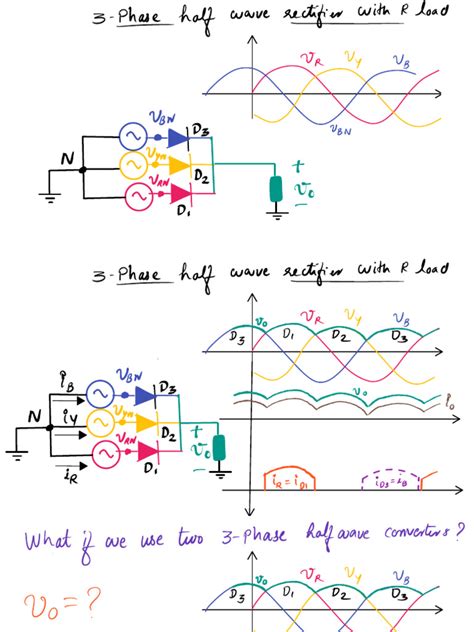 3-Phase half wave rectifier with R load
VR VY VB
VBN
VBN D3
N VYN D2
VRN D1
+
Vo
-
3-Phase half wave rectifier with R load
VR VY VB
vo
D3 D1 D2 D3
vo
io
iB VBN D3
N iY VYN D2
iR VRN D1
+
Vo
-
iR = iD1 iD3 = iB
What if we use two 3-Phase half wave converters?
vo VR VY VB
D3 D1 D2 D3
Vo = ?